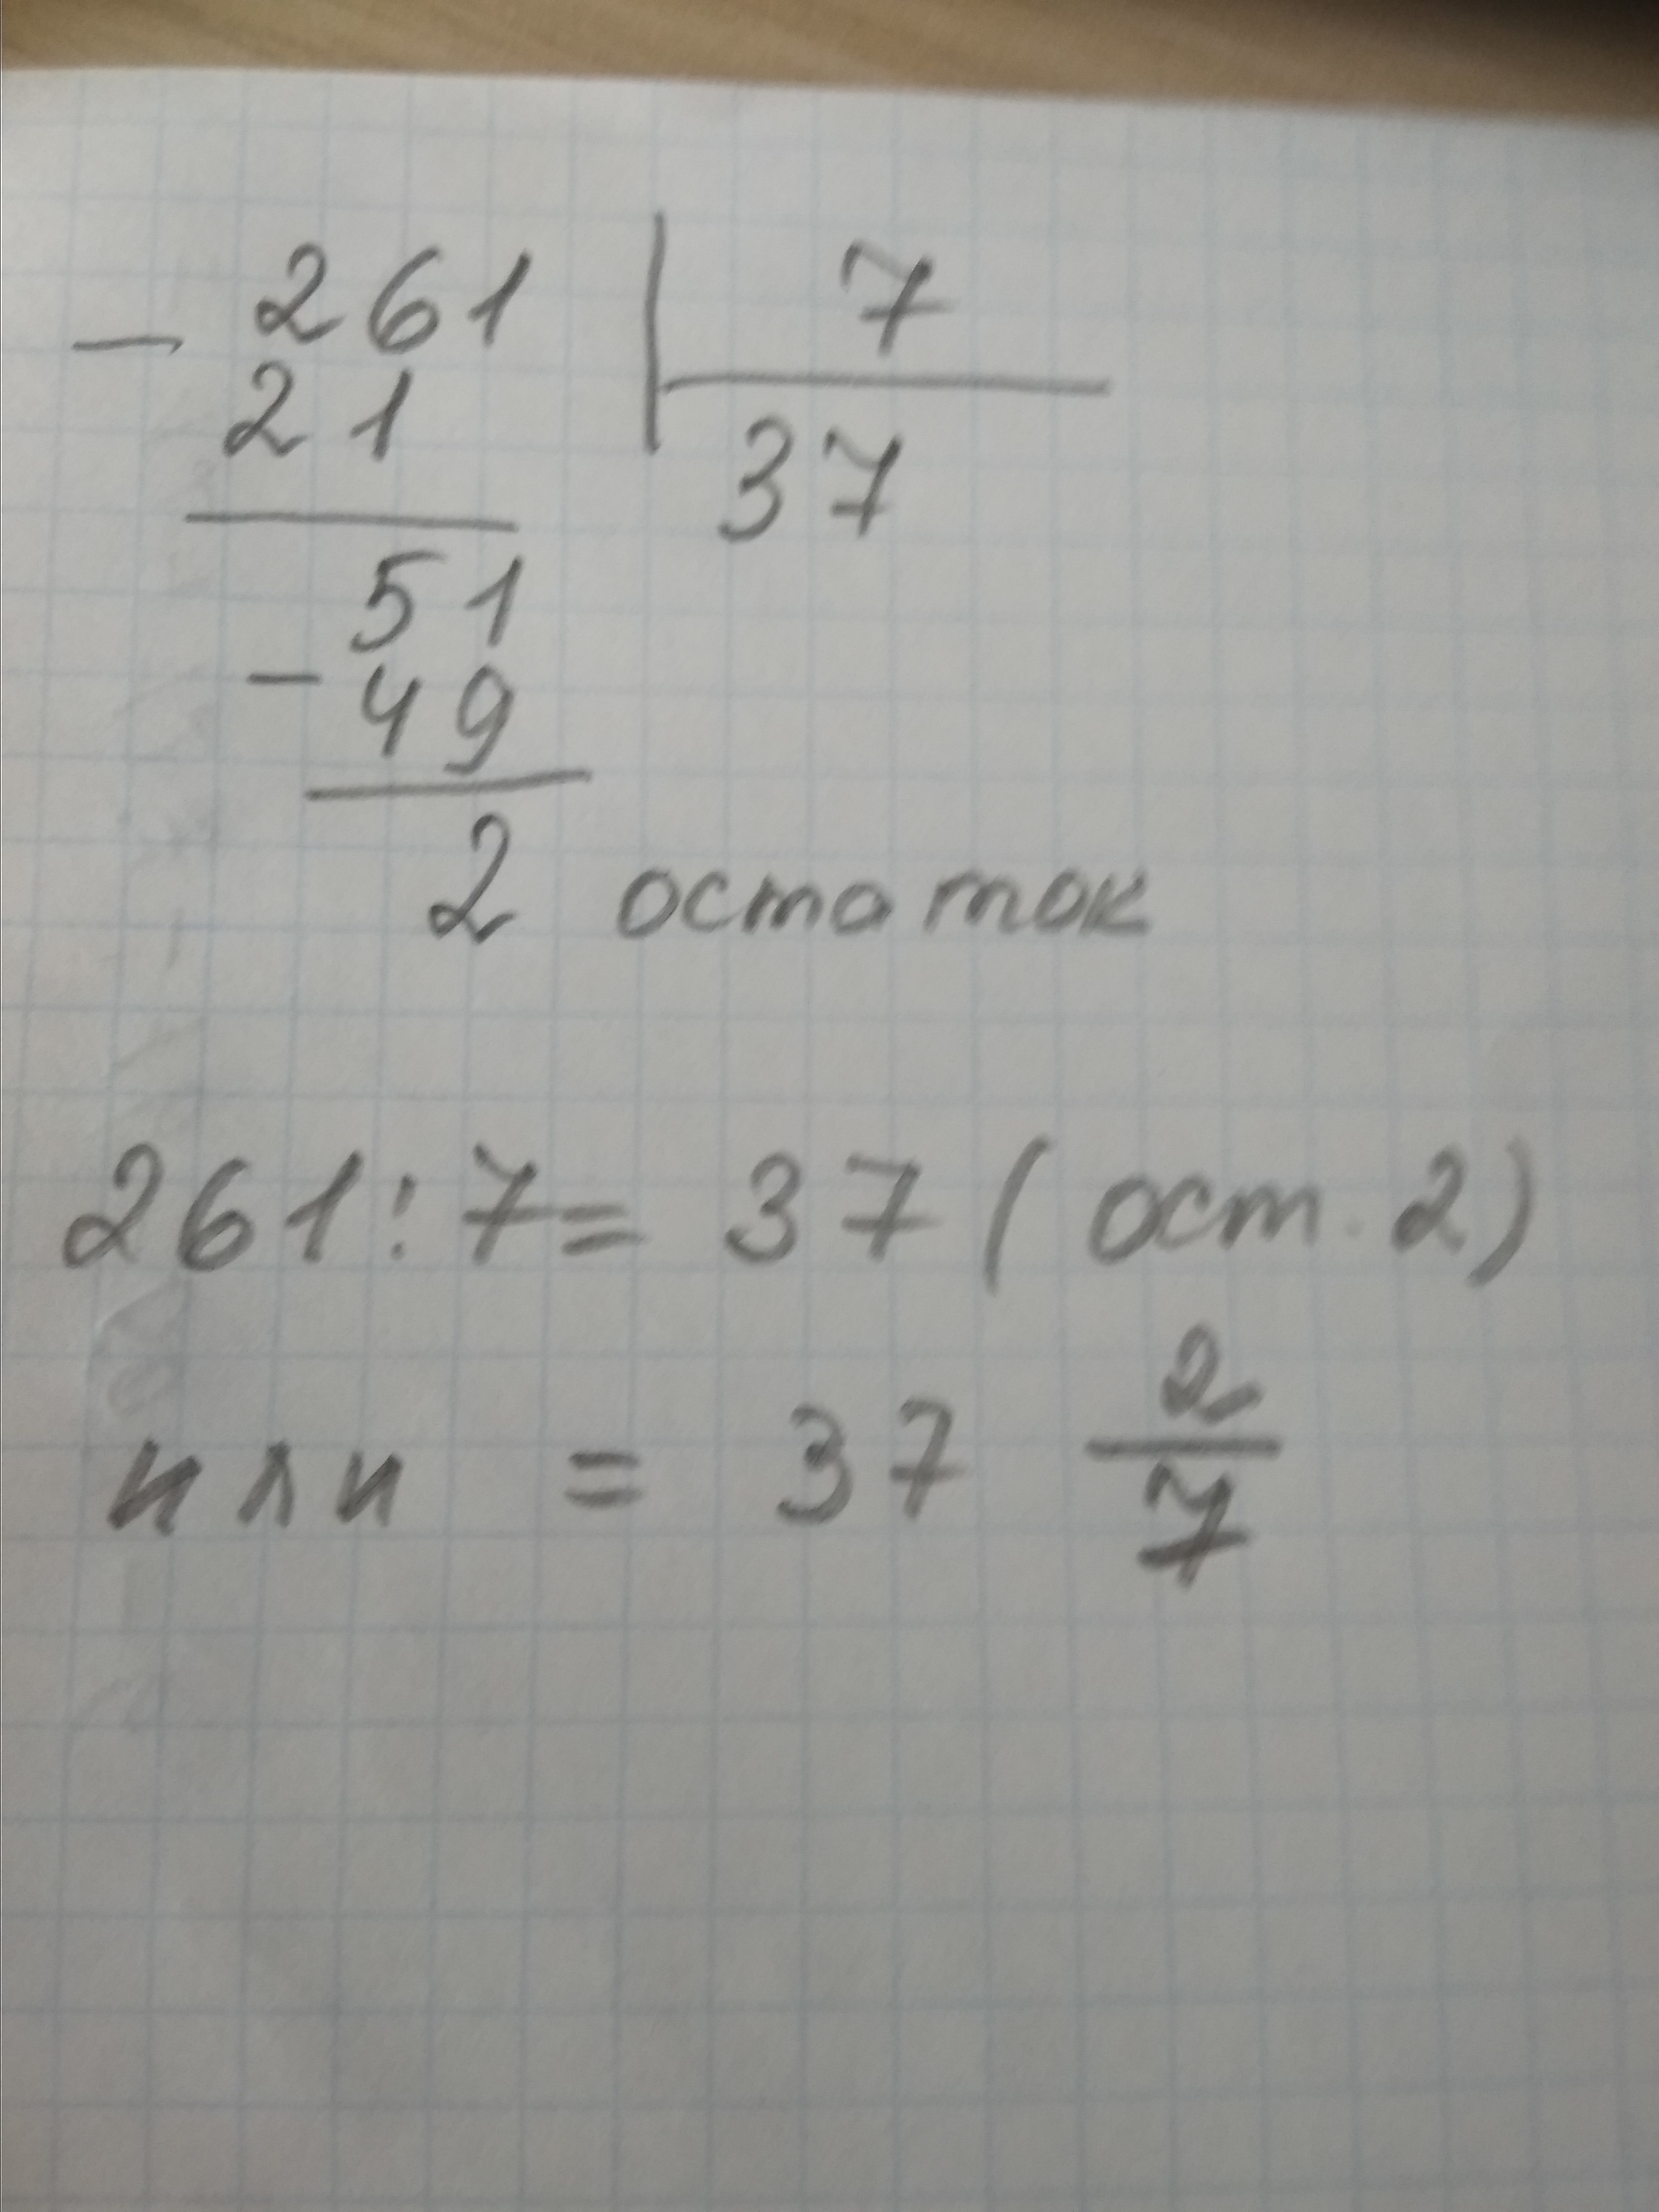 - 261 | 7
21 37
51
- 49
2 остаток
261 : 7 = 37 (ост. 2)
или = 37 2/7